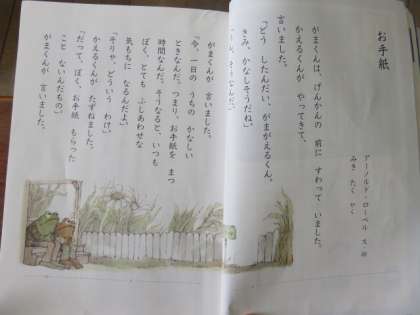 お手紙
アーノルド・ローベル 文・絵
みき たく やく
がまくんは、げんかんの 前に すわって いました。
かえるくんが やって きて、
言いました。
「どう したんだい、がまがえるくん。
きみ、かなしそうだね。」
がまくんが 言いました。
「今、一日の うちの かなしい
ときなんだ。つまり、お手紙を まつ
時間なんだ。そうなると、いつも
ぼく、とても ふしあわせな
気もちに なるんだよ。」
「そりゃ、どういう わけ。」
かえるくんが たずねました。
「だって、ぼく、お手紙 もらった
こと ないんだもの。」
がまくんが 言いました。